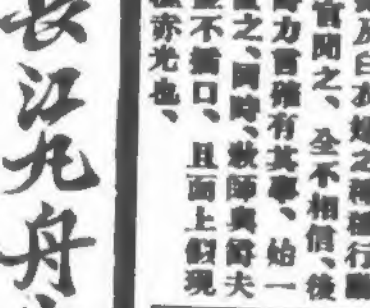 及白衣婦之種種行
官聞之、全不相信、後
力言確有其事、始一
之、同時、牧師與爵夫
不插口、且面上似現
亦光也、
長江舟